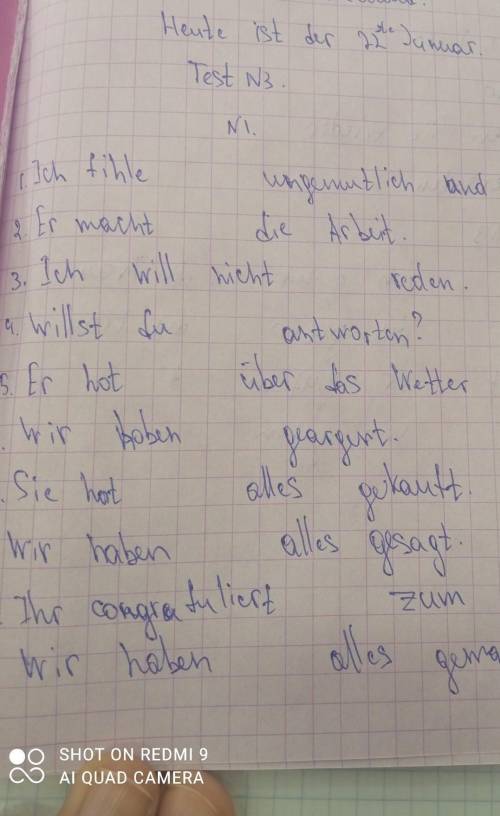 Heute ist der 22ste Januar.
Test N3.
N1.
1. Ich fihle ungemutlich and
2. Er macht die Arbeit.
3. Ich will nicht reden.
4. Willst du antworten?
5. Er hot über das Wetter
. Wir hoben geargert.
. Sie hat alles gekauft.
Wir haben alles gesagt.
. Ihr congratuliert zum
Wir haben alles gema
SHOT ON REDMI 9
AI QUAD CAMERA